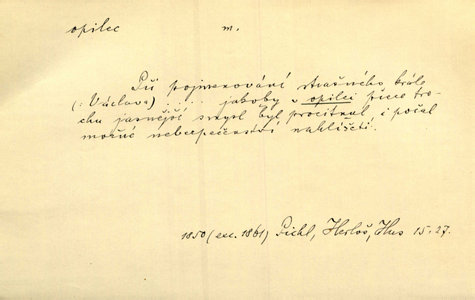 opilec m.
Při pojmenování strašného krále
(: Václava) .... jakoby v opilci přece tro-
chu jasnější smysl byl procitnul, i počal
možné nebezpečenství nahlížeti.
1850 (exc. 1861) Pichl, Herloš, Hus 15.27.